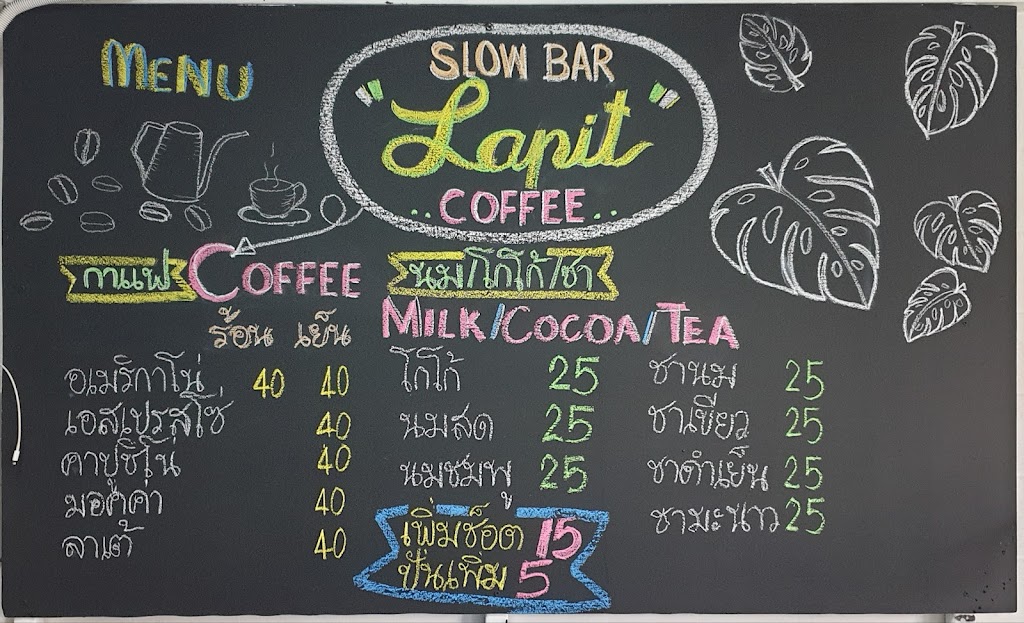 MENU
SLOW BAR
Lapit
COFFEE
กาแฟ COFFEE
ร้อน เย็น
อเมริกาโน่ 40 40
เอสเปรสโซ่ 40
คาปูชิโน 40
มอคค่า 40
ลาเต้ 40
นม/โกโก้/ชา
MILK/COCOA/TEA
โกโก้ 25
นมสด 25
นมชมพู 25
เพิ่มช็อต 15
ปั่นเพิ่ม 5
ชานม 25
ชาเขียว 25
ชาดำเย็น 25
ชามะนาว 25